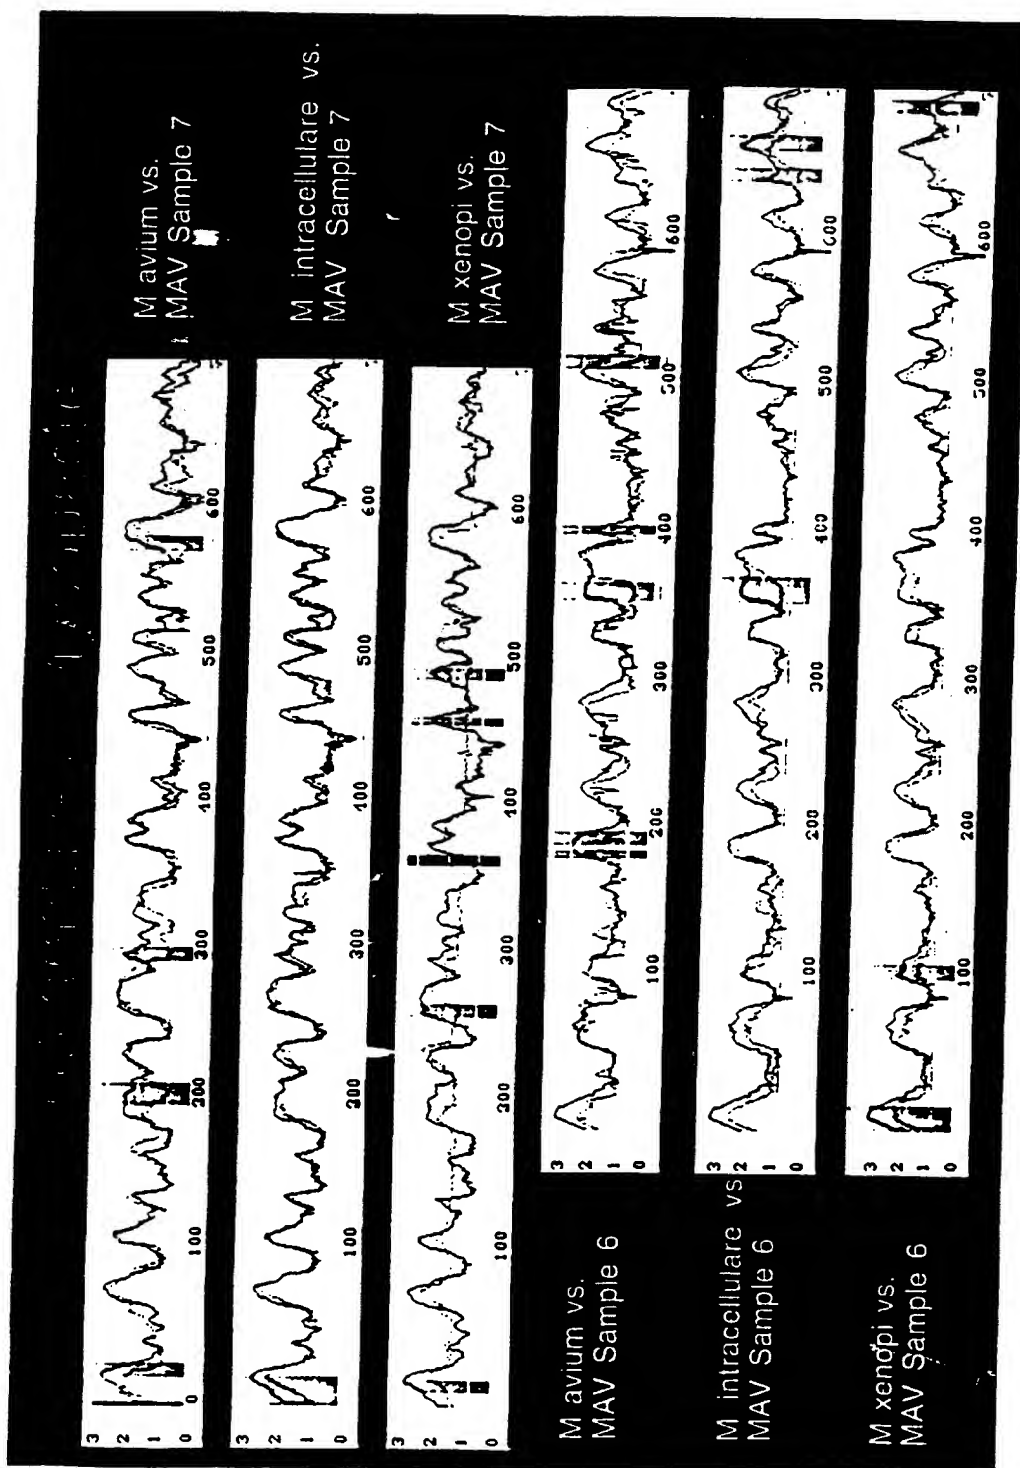 M avium vs.
MAV Sample 7
3
2
1
0
0 100 200 300 400 500 600
M intracellulare vs.
MAV Sample 7
3
2
1
0
100 200 300 400 500 600
M xenopi vs.
MAV Sample 7
3
2
1
0
100 200 300 400 500 600
M avium vs.
MAV Sample 6
3
2
1
0
100 200 300 400 500 600
M intracellulare vs
MAV Sample 6
3
2
1
0
100 200 300 400 500 600
M xenopi vs.
MAV Sample 6
3
2
1
0
100 200 300 400 500 600